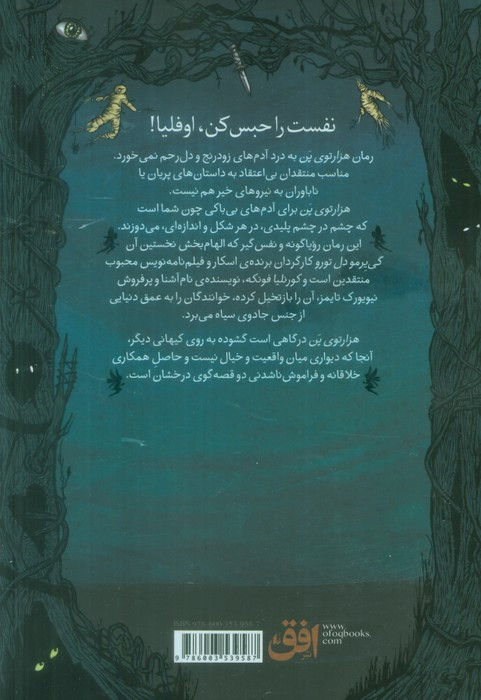 نفست را حبس کن، اوفلیا!
رمان هزارتوی پَن به درد آدم‌های زودرنج و دل‌رحم نمی‌خورد.
مناسب منتقدان بی‌اعتقاد به داستان‌های پریان یا
ناباوران به نیروهای خیر هم نیست.
هزارتوی پَن برای آدم‌های بی‌باکی چون شما است
که چشم در چشم پلیدی، در هر شکل و اندازه‌ای، می‌دوزند.
این رمان رؤیاگونه و نفس‌گیر که الهام‌بخش نخستین آن
گی‌یرمو دل تورو کارگردان برنده‌ی اسکار و فیلم‌نامه‌نویس محبوب
منتقدین است و کورنلیا فونکه، نویسنده‌ی نام‌آشنا و پرفروش
نیویورک تایمز، آن را بازتخیل کرده، خوانندگان را به عمق دنیایی
از جنس جادوی سیاه می‌برد.
هزارتوی پَن درگاهی است گشوده به روی کیهانی دیگر،
آنجا که دیواری میان واقعیت و خیال نیست و حاصل همکاری
خلاقانه و فراموش ناشدنی دو قصه‌گوی درخشان است.
ISBN 978-600-353-958-7
9 786003 539587
نشر افق
www.
ofoqbooks.
com